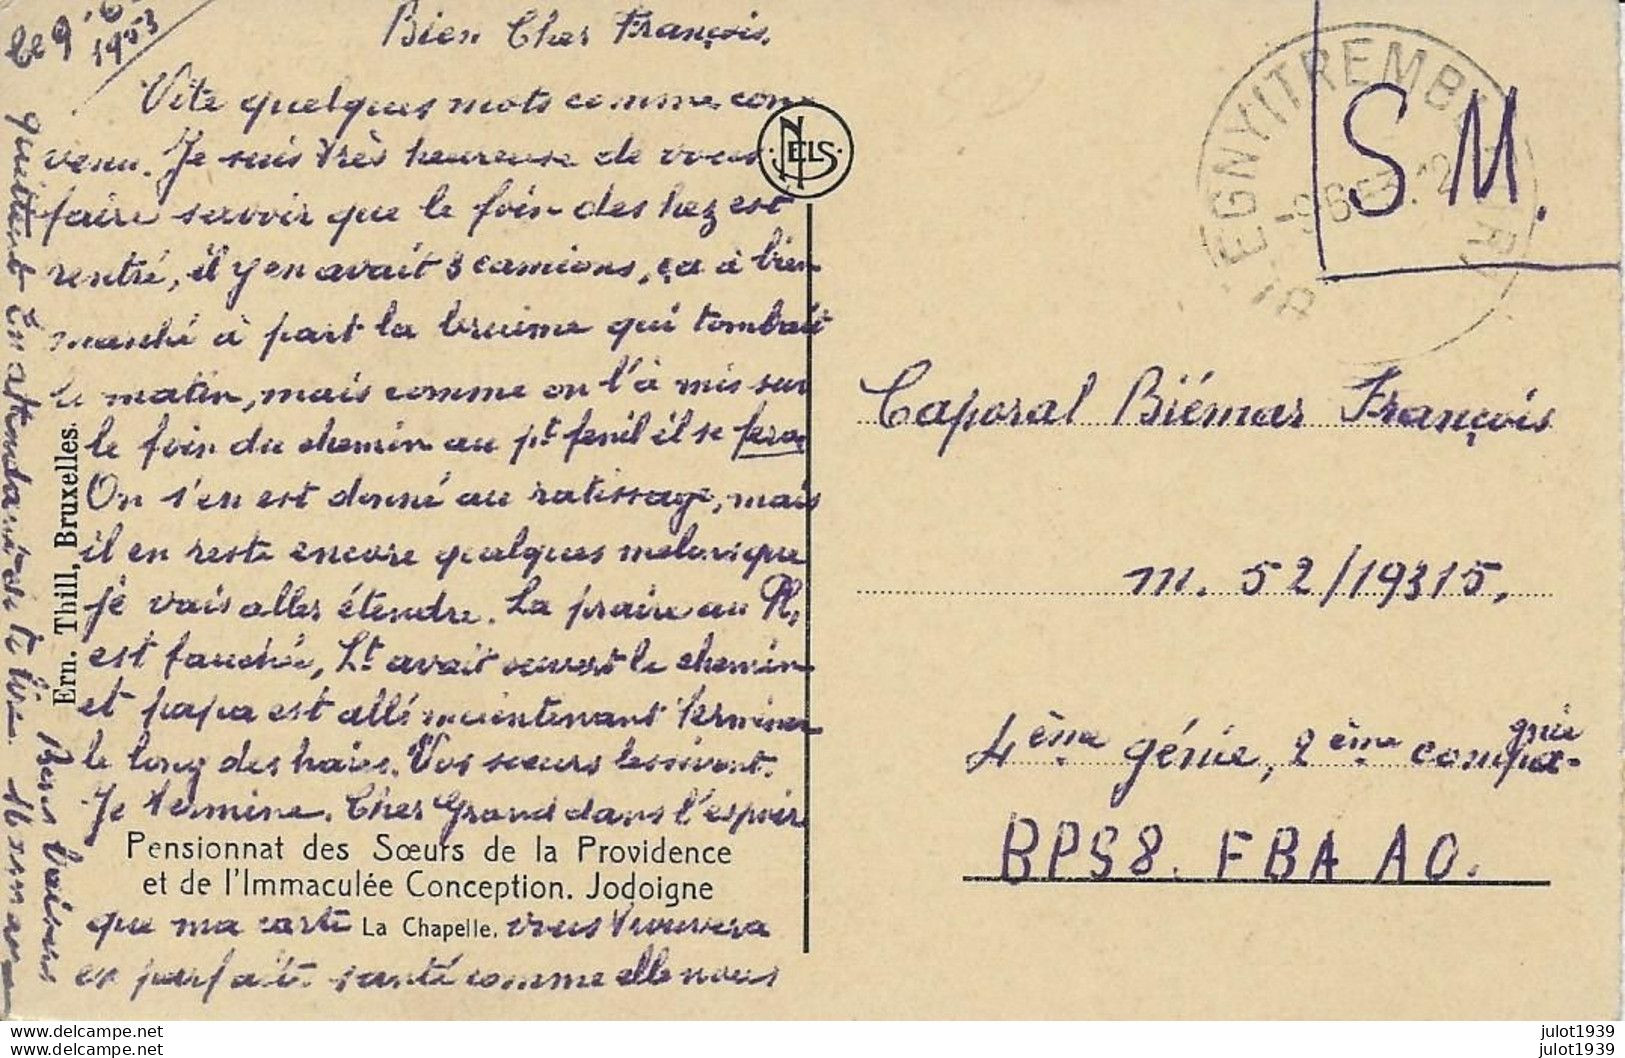 Le 9/6/
1953
Bien Cher François,
Vite quelques mots comme con-
venu. Je suis très heureuse de vous
faire savoir que le foin des hez est
rentré, il y en avait 3 camions, ça à bien
marché à part la bruime qui tombait
le matin, mais comme on l'à mis sur
le foin du chemin au pt fenil il se fera.
On s'en est donné au ratissage, mais
il en reste encore quelques que
je vais aller étendre. La praire au
est fauchée, Lt avait ouvert le chemin
et papa est allé maintenant terminer
le long des haies. Vos soeurs lessivent.
Je termine. Cher Grand dans l'espoir
que ma carte vous trouvera
en parfaite santé comme elle nous
quittent En attendant de te lire.
Bons baisers
maman
NELS
Ern. Thill, Bruxelles.
Pensionnat des Sœurs de la Providence
et de l'Immaculée Conception. Jodoigne
La Chapelle.
-9.6.53.12
S.M.
Caporal Biémar François
m. 52/19315.
4ème génie, 2ème compagnie
BPS8. FBA AO.
julot1939
julot1939
www.delcampe.net
www.delcampe.net